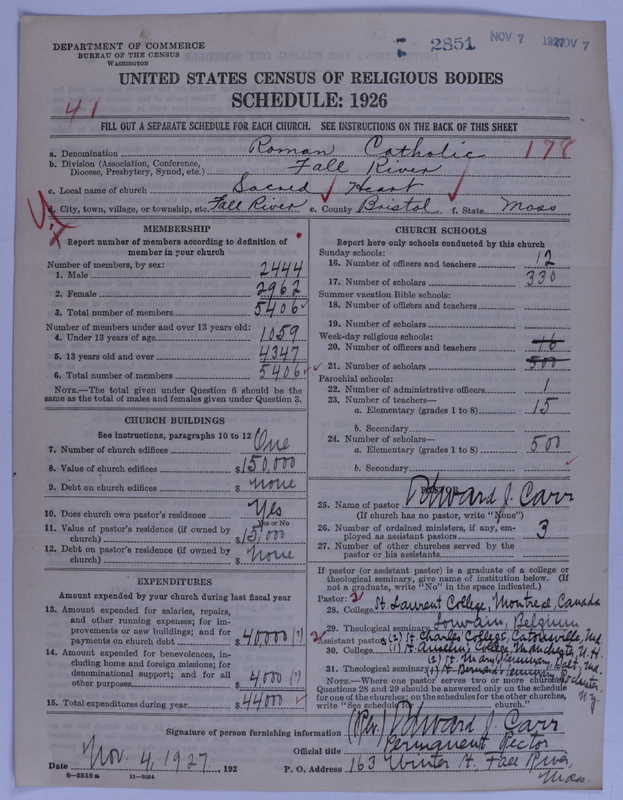 DEPARTMENT OF COMMERCE
BUREAU OF THE CENSUS
WASHINGTON
2851
NOV 7 1927
NOV 7
UNITED STATES CENSUS OF RELIGIOUS BODIES
SCHEDULE: 1926
41
FILL OUT A SEPARATE SCHEDULE FOR EACH CHURCH. SEE INSTRUCTIONS ON THE BACK OF THIS SHEET
a. Denomination Roman Catholic 178
b. Division (Association, Conference, Diocese, Presbytery, Synod, etc.) Fall River
c. Local name of church Sacred Heart
d. City, town, village, or township, etc. Fall River e. County Bristol f. State Mass
MEMBERSHIP
Report number of members according to definition of
member in your church
Number of members, by sex:
1. Male 2444
2. Female 2962
3. Total number of members 5406
Number of members under and over 13 years old:
4. Under 13 years of age 1059
5. 13 years old and over 4347
6. Total number of members 5406
NOTE.—The total given under Question 6 should be the
same as the total of males and females given under Question 3.
CHURCH BUILDINGS
See instructions, paragraphs 10 to 12
7. Number of church edifices One
8. Value of church edifices $150,000
9. Debt on church edifices $ none
10. Does church own pastor's residence Yes
Yes or No
11. Value of pastor's residence (if owned by
church) $15,000
12. Debt on pastor's residence (if owned by
church) $ none
EXPENDITURES
Amount expended by your church during last fiscal year
13. Amount expended for salaries, repairs,
and other running expenses; for im-
provements or new buildings; and for
payments on church debt $40,000 (?)
14. Amount expended for benevolences, in-
cluding home and foreign missions; for
denominational support; and for all
other purposes $4,000 (?)
15. Total expenditures during year $44000
CHURCH SCHOOLS
Report here only schools conducted by this church
Sunday schools:
16. Number of officers and teachers 12
17. Number of scholars 330
Summer vacation Bible schools:
18. Number of officers and teachers
19. Number of scholars
Week-day religious schools:
20. Number of officers and teachers 16
21. Number of scholars 500
Parochial schools:
22. Number of administrative officers 1
23. Number of teachers—
a. Elementary (grades 1 to 8) 15
b. Secondary
24. Number of scholars—
a. Elementary (grades 1 to 8) 500
b. Secondary
PASTOR
25. Name of pastor Edward J. Carr
(If church has no pastor, write "None")
26. Number of ordained ministers, if any, em-
ployed as assistant pastors 3
27. Number of other churches served by the
pastor or his assistants
If pastor (or assistant pastor) is a graduate of a college or
theological seminary, give name of institution below. (If
not a graduate, write "No" in the space indicated.)
Pastor: 2
28. College St. Laurent College, Montreal, Canada
29. Theological seminary Louvain, Belgium
2 Assistant pastor: (2) St. Charles College, Catonsville, Md
30. College (1) St. Anselm College, Manchester, N.H.
(2) St. Mary Seminary, Balt., Md.
31. Theological seminary (1) St. Bernard Seminary, Rochester N.Y.
NOTE.—Where one pastor serves two or more churches,
Questions 28 and 29 should be answered only on the schedule
for one of the churches; on the schedules for the other churches,
write "See schedule church."
Signature of person furnishing information (Rev.) Edward J. Carr
Official title Permanent Rector
Date Nov. 4, 1927, 192
P. O. Address 163 Winter St. Fall River,
Mass.
8—5518 a 11—9084